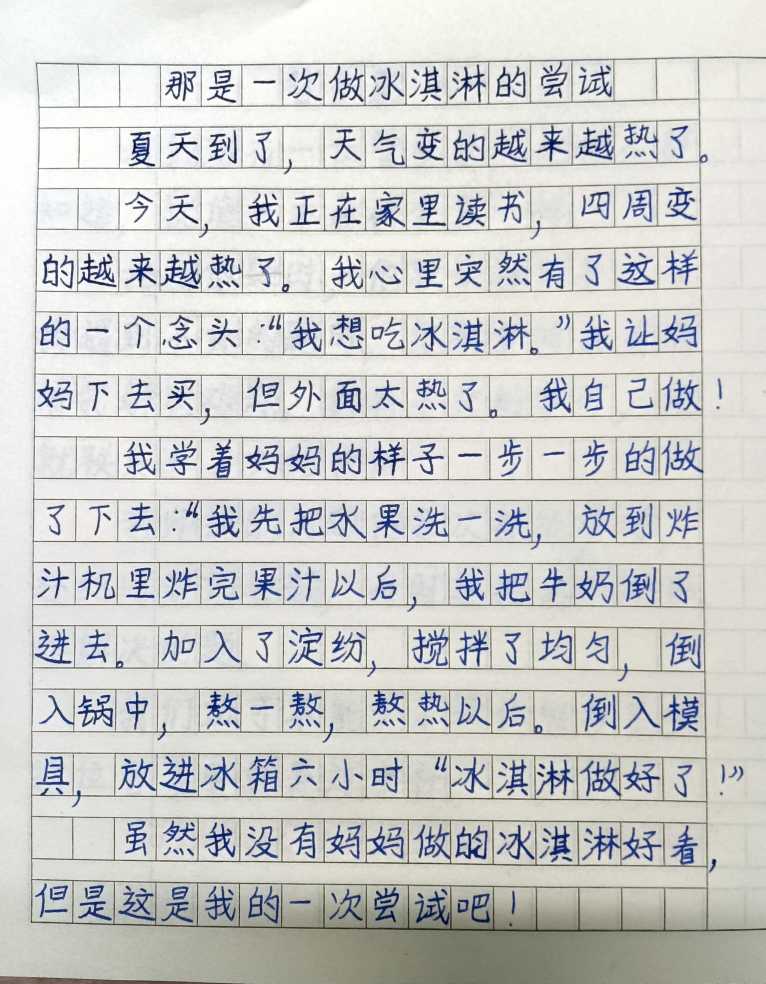 那是一次做冰淇淋的尝试
夏天到了，天气变的越来越热了。
今天，我正在家里读书，四周变
的越来越热了。我心里突然有了这样
的一个念头：“我想吃冰淇淋。”我让妈
妈下去买，但外面太热了。我自己做！
我学着妈妈的样子一步一步的做
了下去：“我先把水果洗一洗，放到炸
汁机里炸完果汁以后，我把牛奶倒了
进去。加入了淀纷，搅拌了均匀，倒
入锅中，熬一熬，熬热以后。倒入模
具，放进冰箱六小时“冰淇淋做好了！”
虽然我没有妈妈做的冰淇淋好看，
但是这是我的一次尝试吧！